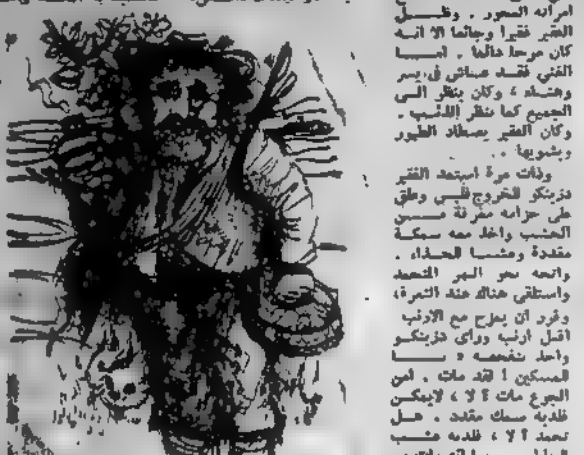 امرأته العجوز . وظـــل
الفقير فقيرا وجائعا الا انـه
كان مرحا دائما . امـــا
الغني فقـد عـاش في يسر
وكان ينظر الـى
الجميع كما ينظر الذئـب .
وكان الفقير يصطاد الطيور
ويشويها . .
وذات مرة استعد الفقير
للخروج
على حزامه مغرفة مـــن
الخشب واخذ معه سمكـة
مقددة وعشبـا للحـذاء .
واتجه نحو النهر المتجمد
واستلقى هناك عند الثغرة
وقرر ان يمزح مع الارنب
اقبل ارنب ورأى
واخذ يتفحصه « يـــا
المسكين ! لقد مات . أمن
الجوع مات ؟ لا ، لايمكـن
فلديه سمك مقدد . هـــل
تجمد ؟ لا ، فلديه عشـب